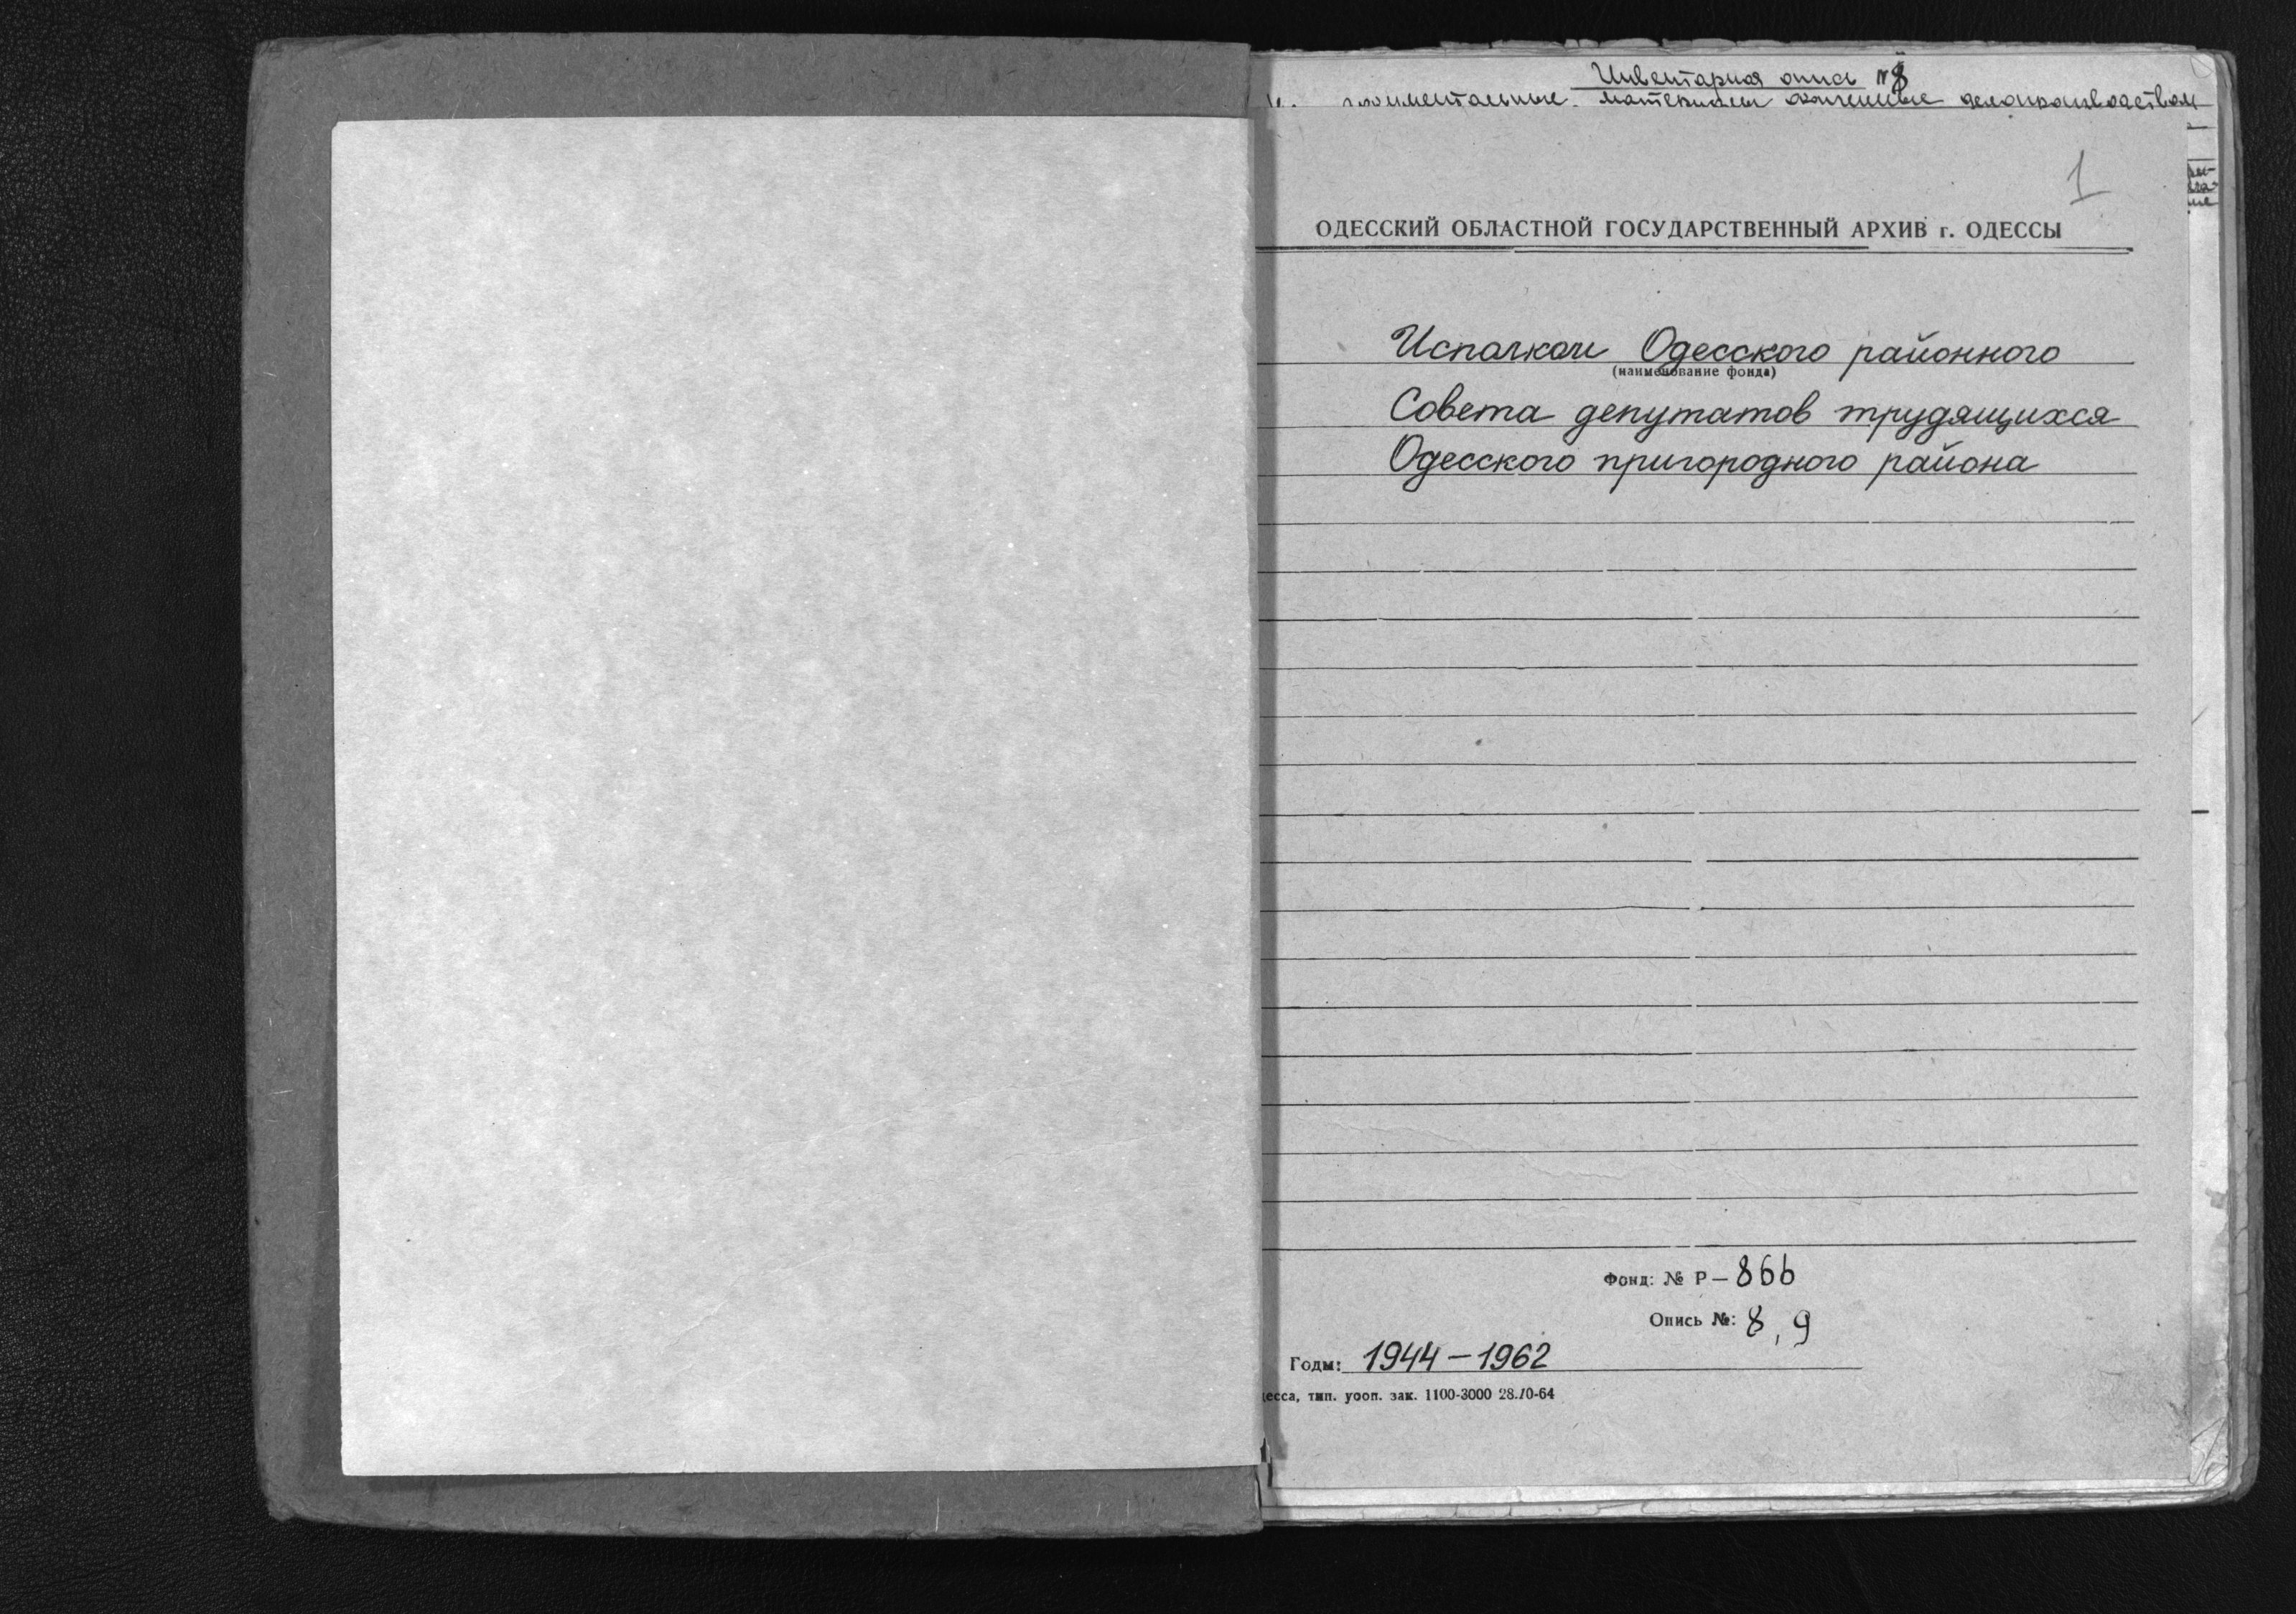 Инвентарная опись № 8
материалы оконченные делопроизводством
1
ОДЕССКИЙ ОБЛАСТНОЙ ГОСУДАРСТВЕННЫЙ АРХИВ г. ОДЕССЫ
Исполком Одесского районного
(наименование фонда)
Совета депутатов трудящихся
Одесского пригородного района
Фонд: № Р — 866
Опись №: 8, 9
Годы: 1944 – 1962
десса, тип. уооп. зак. 1100-3000 28.10-64